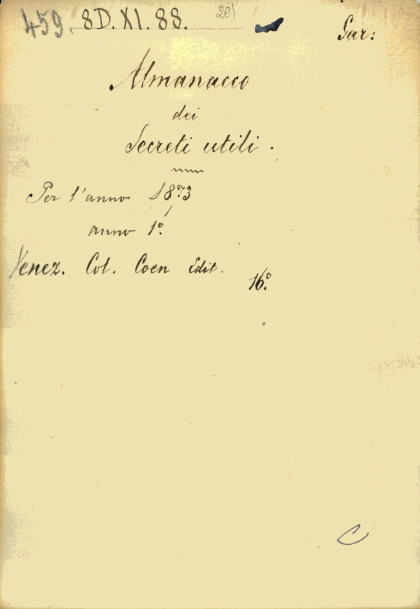 459. 8D. XI. 88. 201
Sar:
Almanacco
dei
Secreti utili.
Per l'anno 1873
anno 1º.
Venez. Col. Coen Edit.
16º.
C